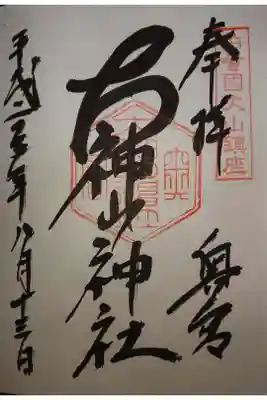 伯耆国大山鎮座
奉拝 奥宮
大神山神社
平成二五年八月十三日